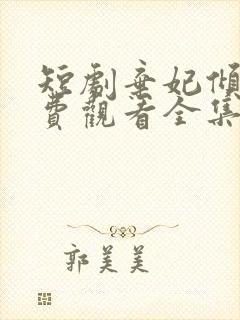 短劇棄妃傾
費觀看全集
郭美美